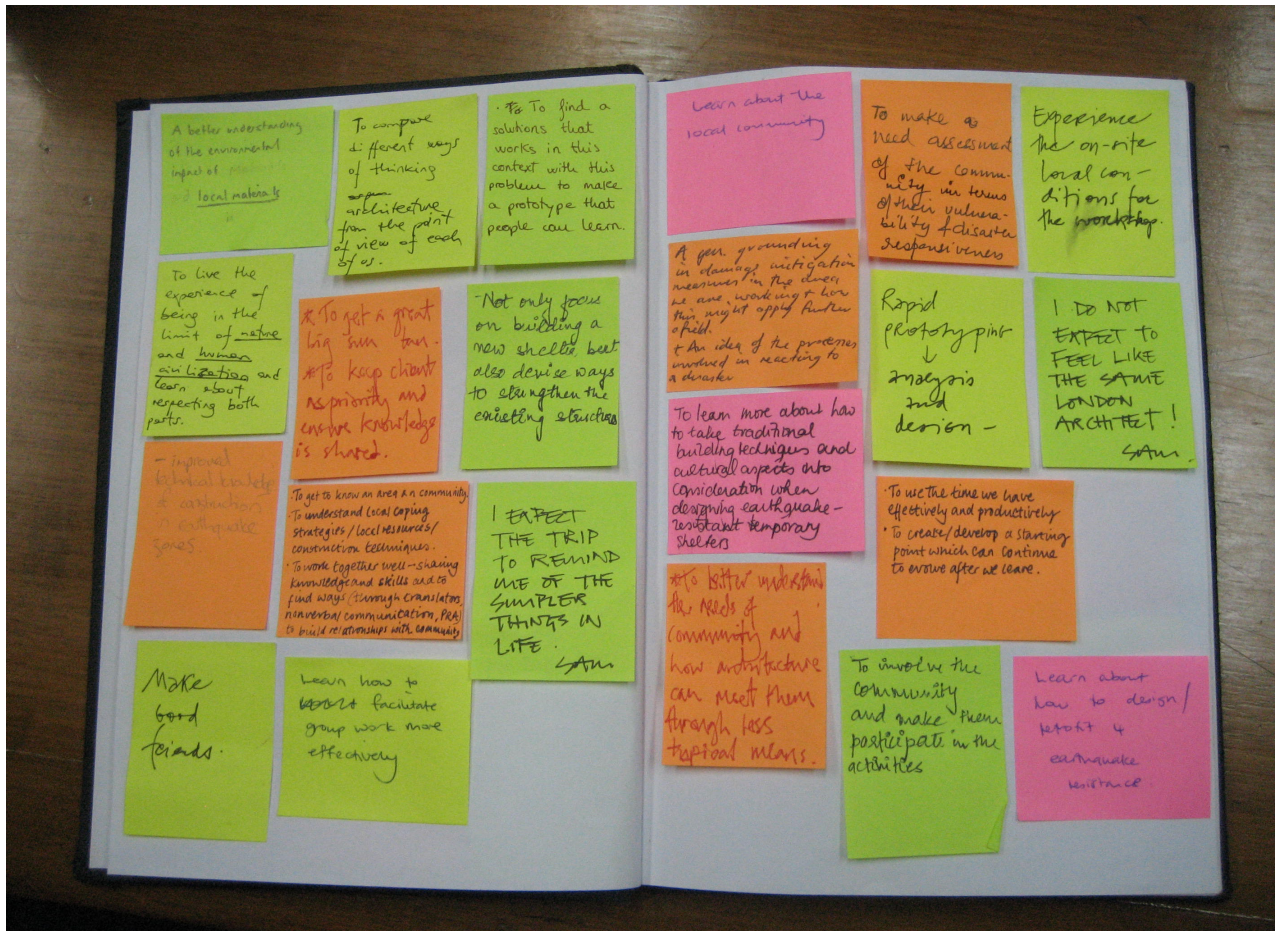 A better understanding
of the environmental
impact of
local materials
To compare
different ways
of thinking
architecture
from the point
of view of each
of us.
· To find a
solutions that
works in this
context with this
problem to make
a prototype that
people can learn.
To live the
experience of
being in the
limit of nature
and human
civilization and
learn about
respecting both
parts.
* To get a great
big sun tan.
* To keep client
as priority and
ensure knowledge
is shared.
- Not only focus
on building a
new shelter but
also devise ways
to strengthen the
existing structures
- improved
technical knowledge
of construction
in earthquake
zones.
· To get to know an area an community.
· To understand local coping
strategies / local resources /
construction techniques.
· To work together well - sharing
knowledge and skills and to
find ways (through translators,
nonverbal communication, PRA)
to build relationships with community
I EXPECT
THE TRIP
TO REMIND
ME OF THE
SIMPLER
THINGS IN
LIFE.
SAM
Make
good
friends.
Learn how to
facilitate
group work more
effectively
Learn about the
local community
To make a
need assessment
of the commu-
nity in terms
of their vulnera-
bility & disaster
responsiveness
Experience
the on-site
local con-
ditions for
the workshop.
A gen. grounding
in damage mitigation
measures in the area
we are working + how
this might apply further
afield.
+ An idea of the processes
involved in reacting to
a disaster
Rapid
prototyping
↓
analysis
and
design -
I DO NOT
EXPECT TO
FEEL LIKE
THE SAME
LONDON
ARCHITET!
SAM.
To learn more about how
to take traditional
building techniques and
cultural aspects into
consideration when
designing earthquake-
resistant temporary
shelters
· To use the time we have
effectively and productively
· To create/develop a starting
point which can continue
to evolve after we leave.
* To better understand
the needs of
community and
how architecture
can meet them
through less
tropical means.
To involve the
community
and make them
participate in the
activities
Learn about
how to design/
retrofit 4
earthquake
resistance